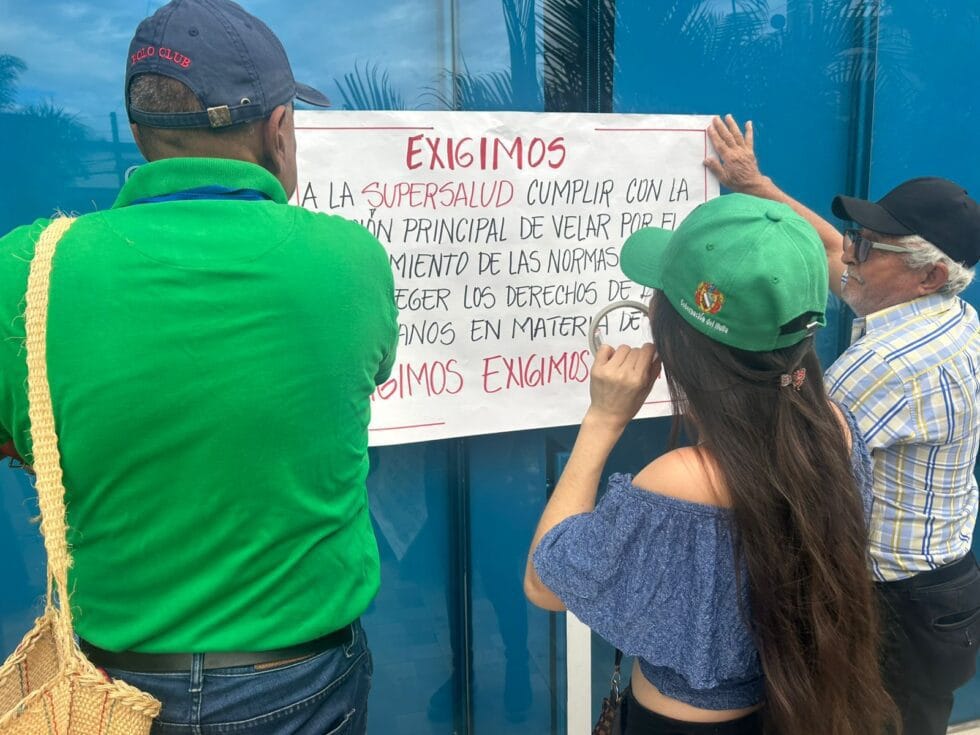 POLO CLUB
EXIGIMOS
A LA SUPERSALUD CUMPLIR CON LA
PRINCIPAL DE VELAR POR EL
DE LAS NORMAS
LOS DERECHOS DE
EN MATERIA DE
EXIGIMOS
Gobernación del Huila